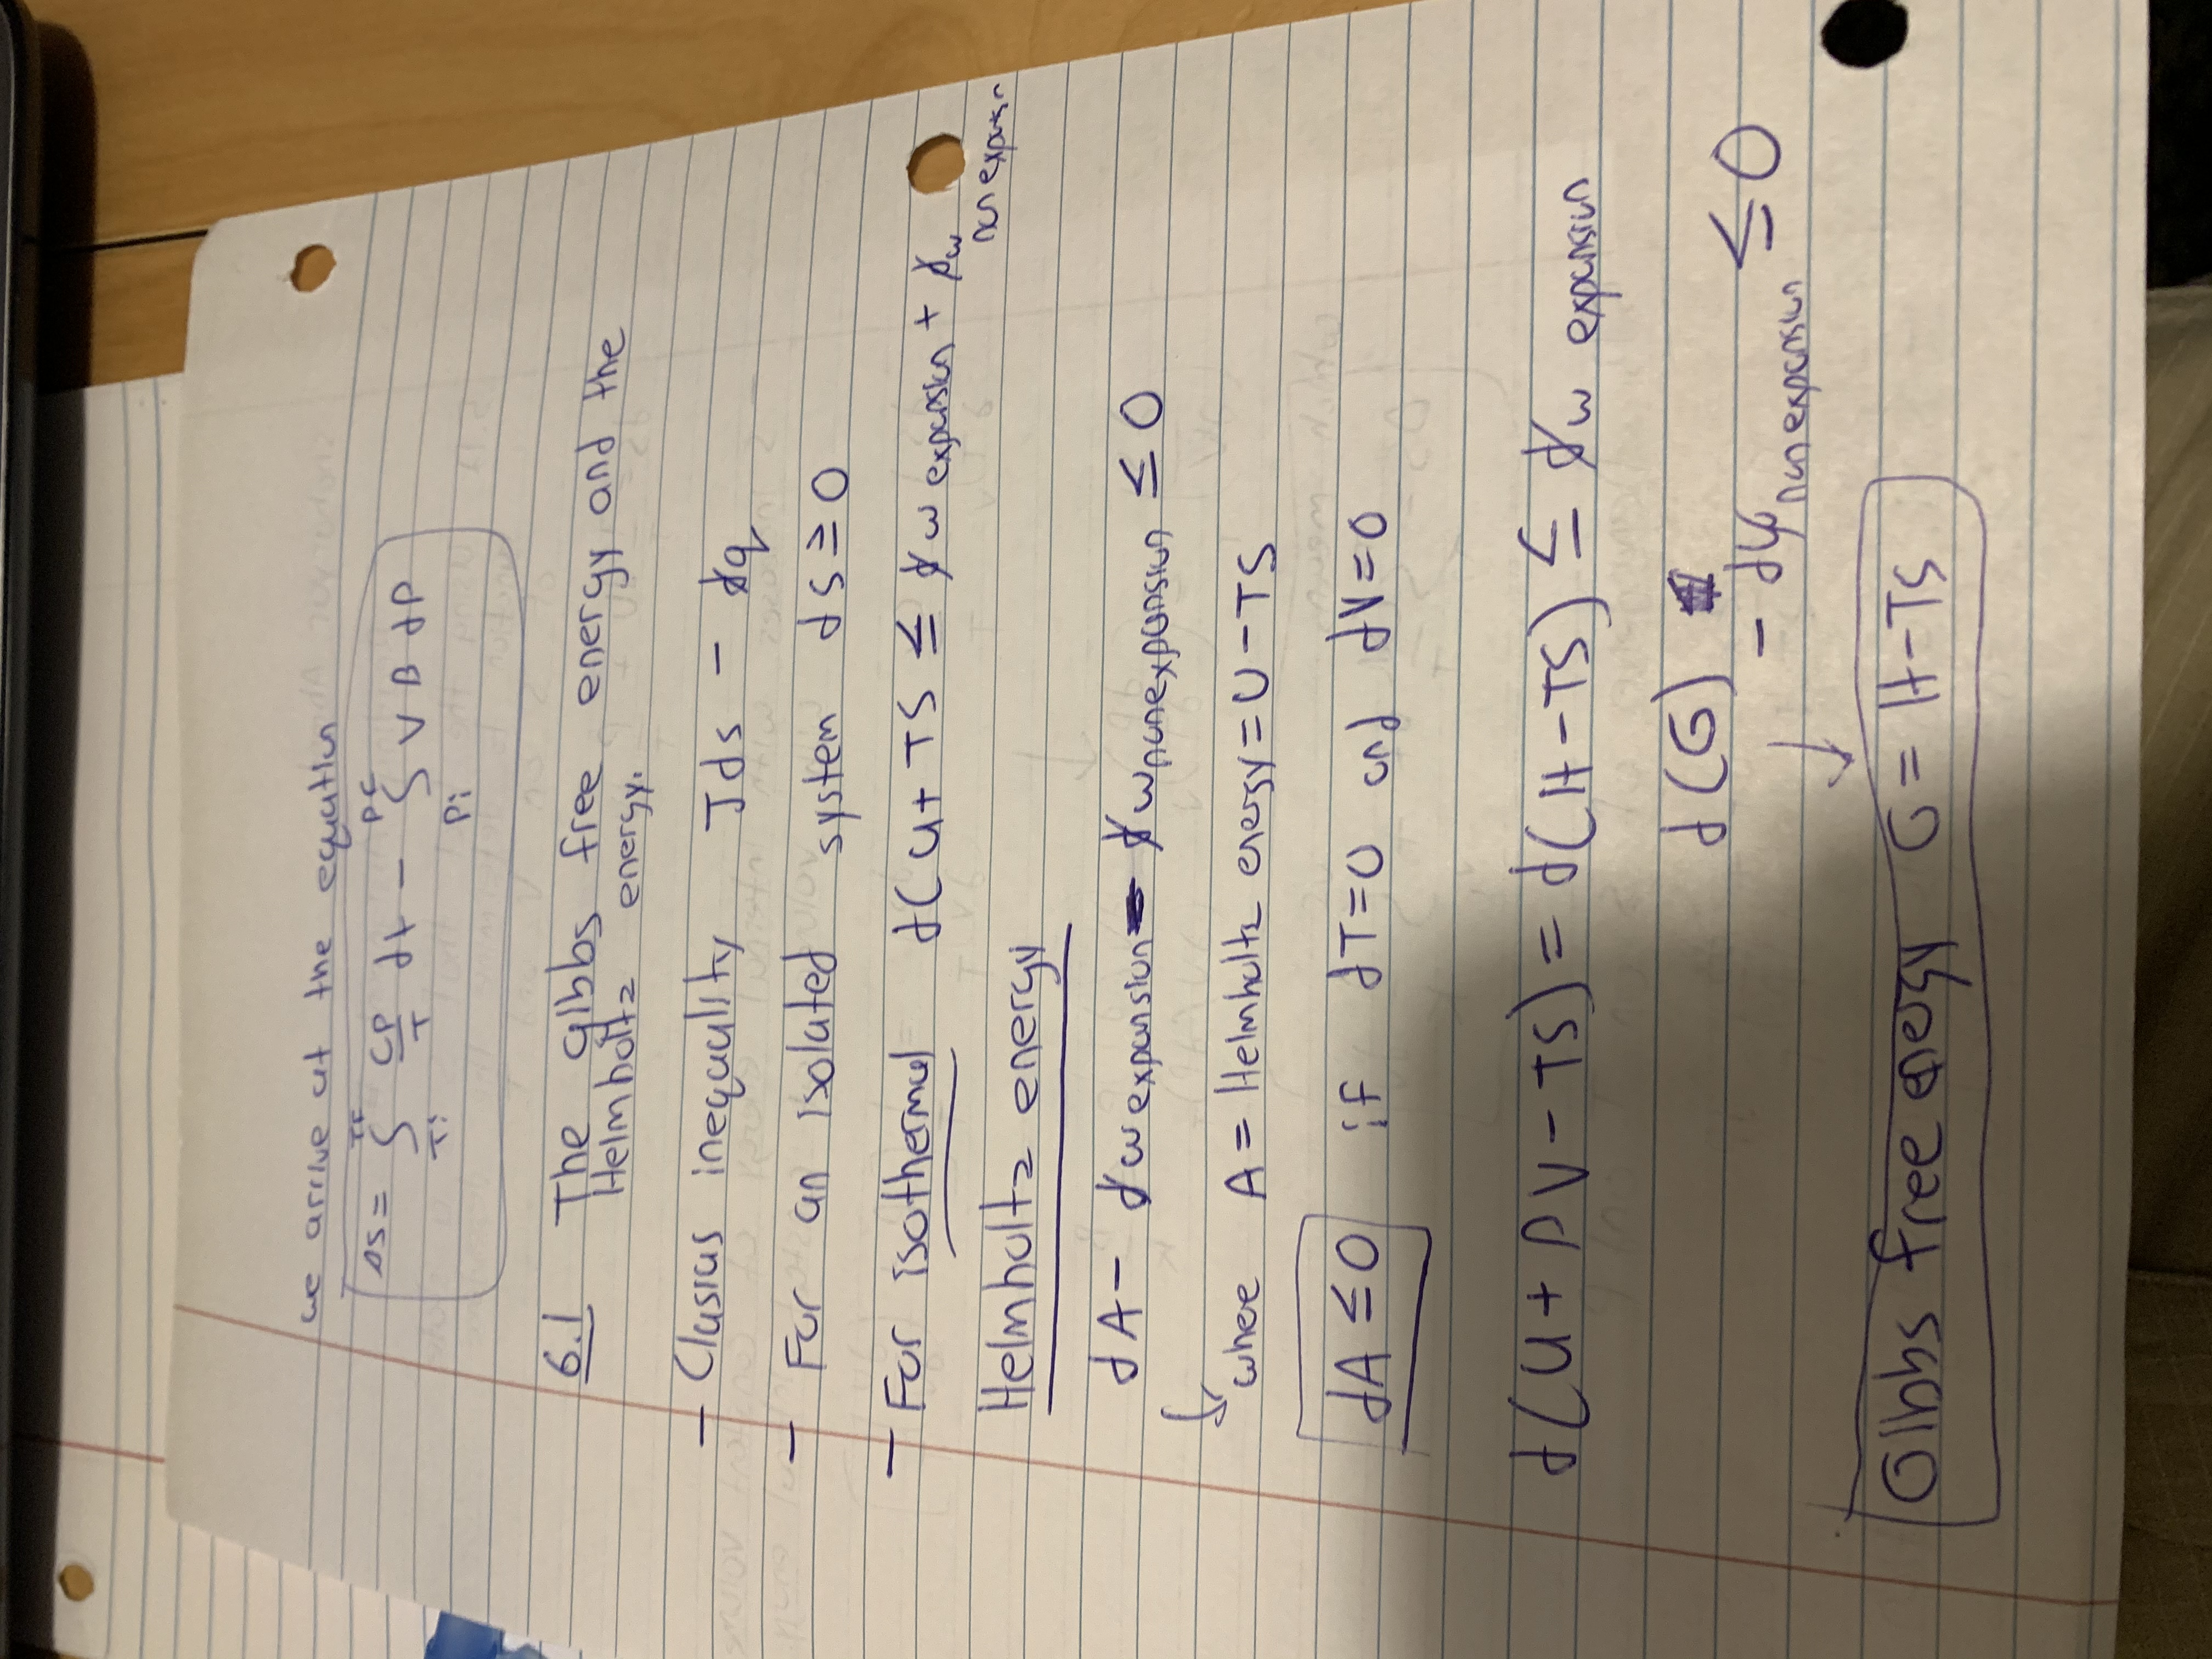 we arrive at the equation
ΔS = ∫_Ti^Tf CP/T dt - ∫_Pi^Pf V B dP
6.1 The gibbs free energy and the
Helmholtz energy.
- Clasius inequality Tds - đq
- For an isolated system ds ≥ 0
- For isothermal d(U+TS ≤ đw expansion + đw
non expansion
Helmholtz energy
dA - đw expansion - đw nonexpansion ≤ 0
where A = Helmholtz energy = U-TS
dA ≤ 0 if dT=0 and dV=0
d(U+PV-TS) = d(H-TS) ≤ đw expansion
d(G)
- đw nonexpansion ≤ 0
Gibbs free energy G = H-TS